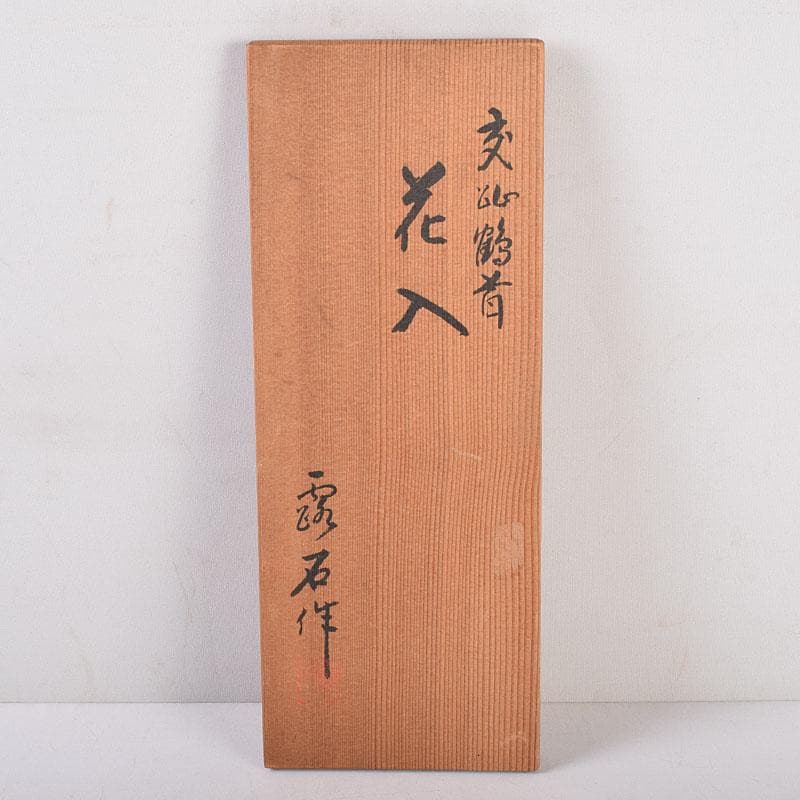 交趾鶴首
花入
露石作